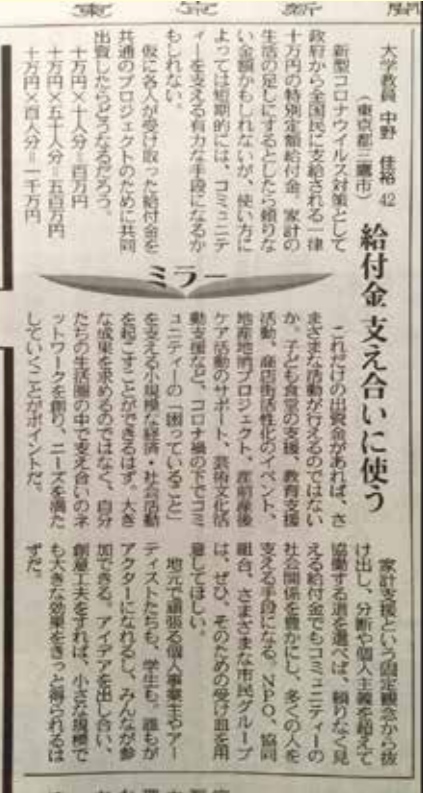 東京新聞
給付金 支え合いに使う
大学教員 中野 佳裕 42
（東京都三鷹市）
新型コロナウイルス対策として
政府から全国民に支給される一律
十万円の特別定額給付金。家計の
生活の足しにするとしたら頼りな
い金額かもしれないが、使い方に
よっては短期的には、コミュニテ
ィーを支える有力な手段になるか
もしれない。
仮に各人が受け取った給付金を
共通のプロジェクトのために共同
出資したらどうなるだろう。
十万円×十人分＝百万円
十万円×五十人分＝五百万円
十万円×百人分＝一千万円
ミラー
これだけの出資金があれば、さ
まざまな活動が行えるのではない
か。子ども食堂の支援、教育支援
活動、商店街活性化のイベント、
地産地消プロジェクト、産前産後
ケア活動のサポート、芸術文化活
動支援など、コロナ禍の下でコミ
ュニティーの「困っていること」
を支える小規模な経済・社会活動
を起こすことができるはず。大き
な成果を求めるのではなく、自分
たちの生活圏の中で支え合いのネ
ットワークを創り、ニーズを満た
していくことがポイントだ。
家計支援という固定観念から抜
け出し、分断や個人主義を超えて
協働する道を選べば、頼りなく見
える給付金でもコミュニティーの
社会関係を豊かにし、多くの人を
支える手段になる。NPO、協同
組合、さまざまな市民グループ
は、ぜひ、そのための受け皿を用
意してほしい。
地元で頑張る個人事業主やアー
ティストたちも、学生も。誰もが
アクターになれるし、みんなが参
加できる。アイデアを出し合い、
創意工夫をすれば、小さな規模で
も大きな効果をきっと得られるは
ずだ。